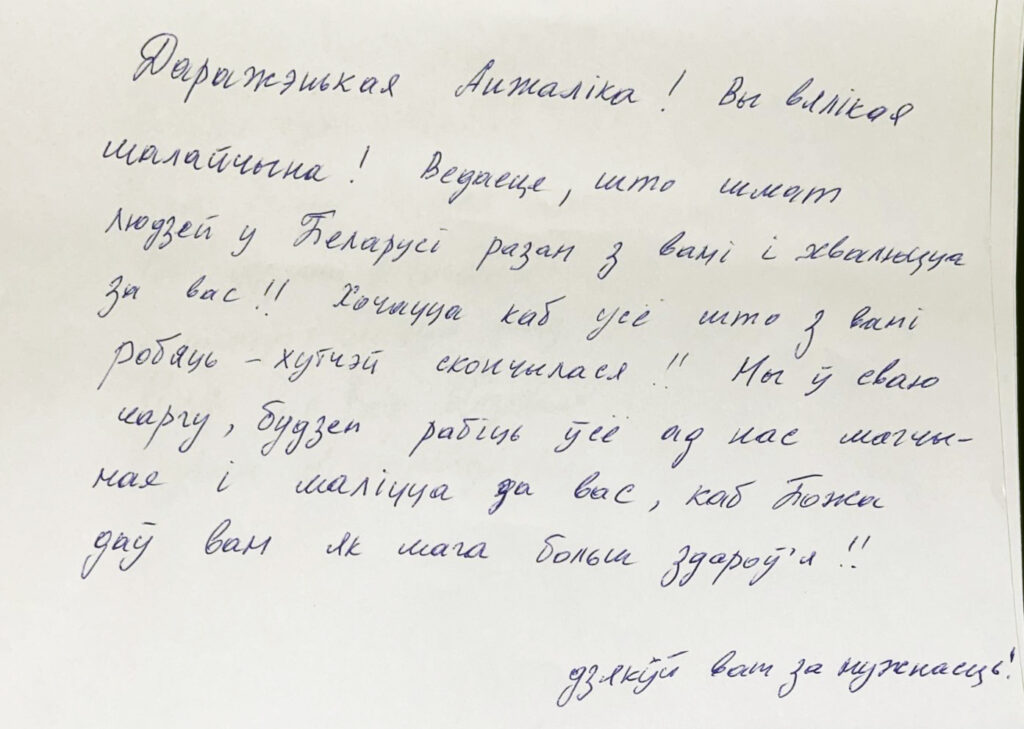 Даражэнькая Анжаліка! Вы вялікая
малайчына! Ведаеце, што шмат
людзей у Беларусі разам з вамі і хвалюцца
за вас!! Хочацца каб усё што з вамі
робяць - хутчэй скончылася!! Мы ў сваю
чаргу, будзем рабіць ўсё ад нас магчы-
мае і маліцца за вас, каб Божа
даў вам як мага больш здароў'я!!
дзякуй вам за мужнасць!